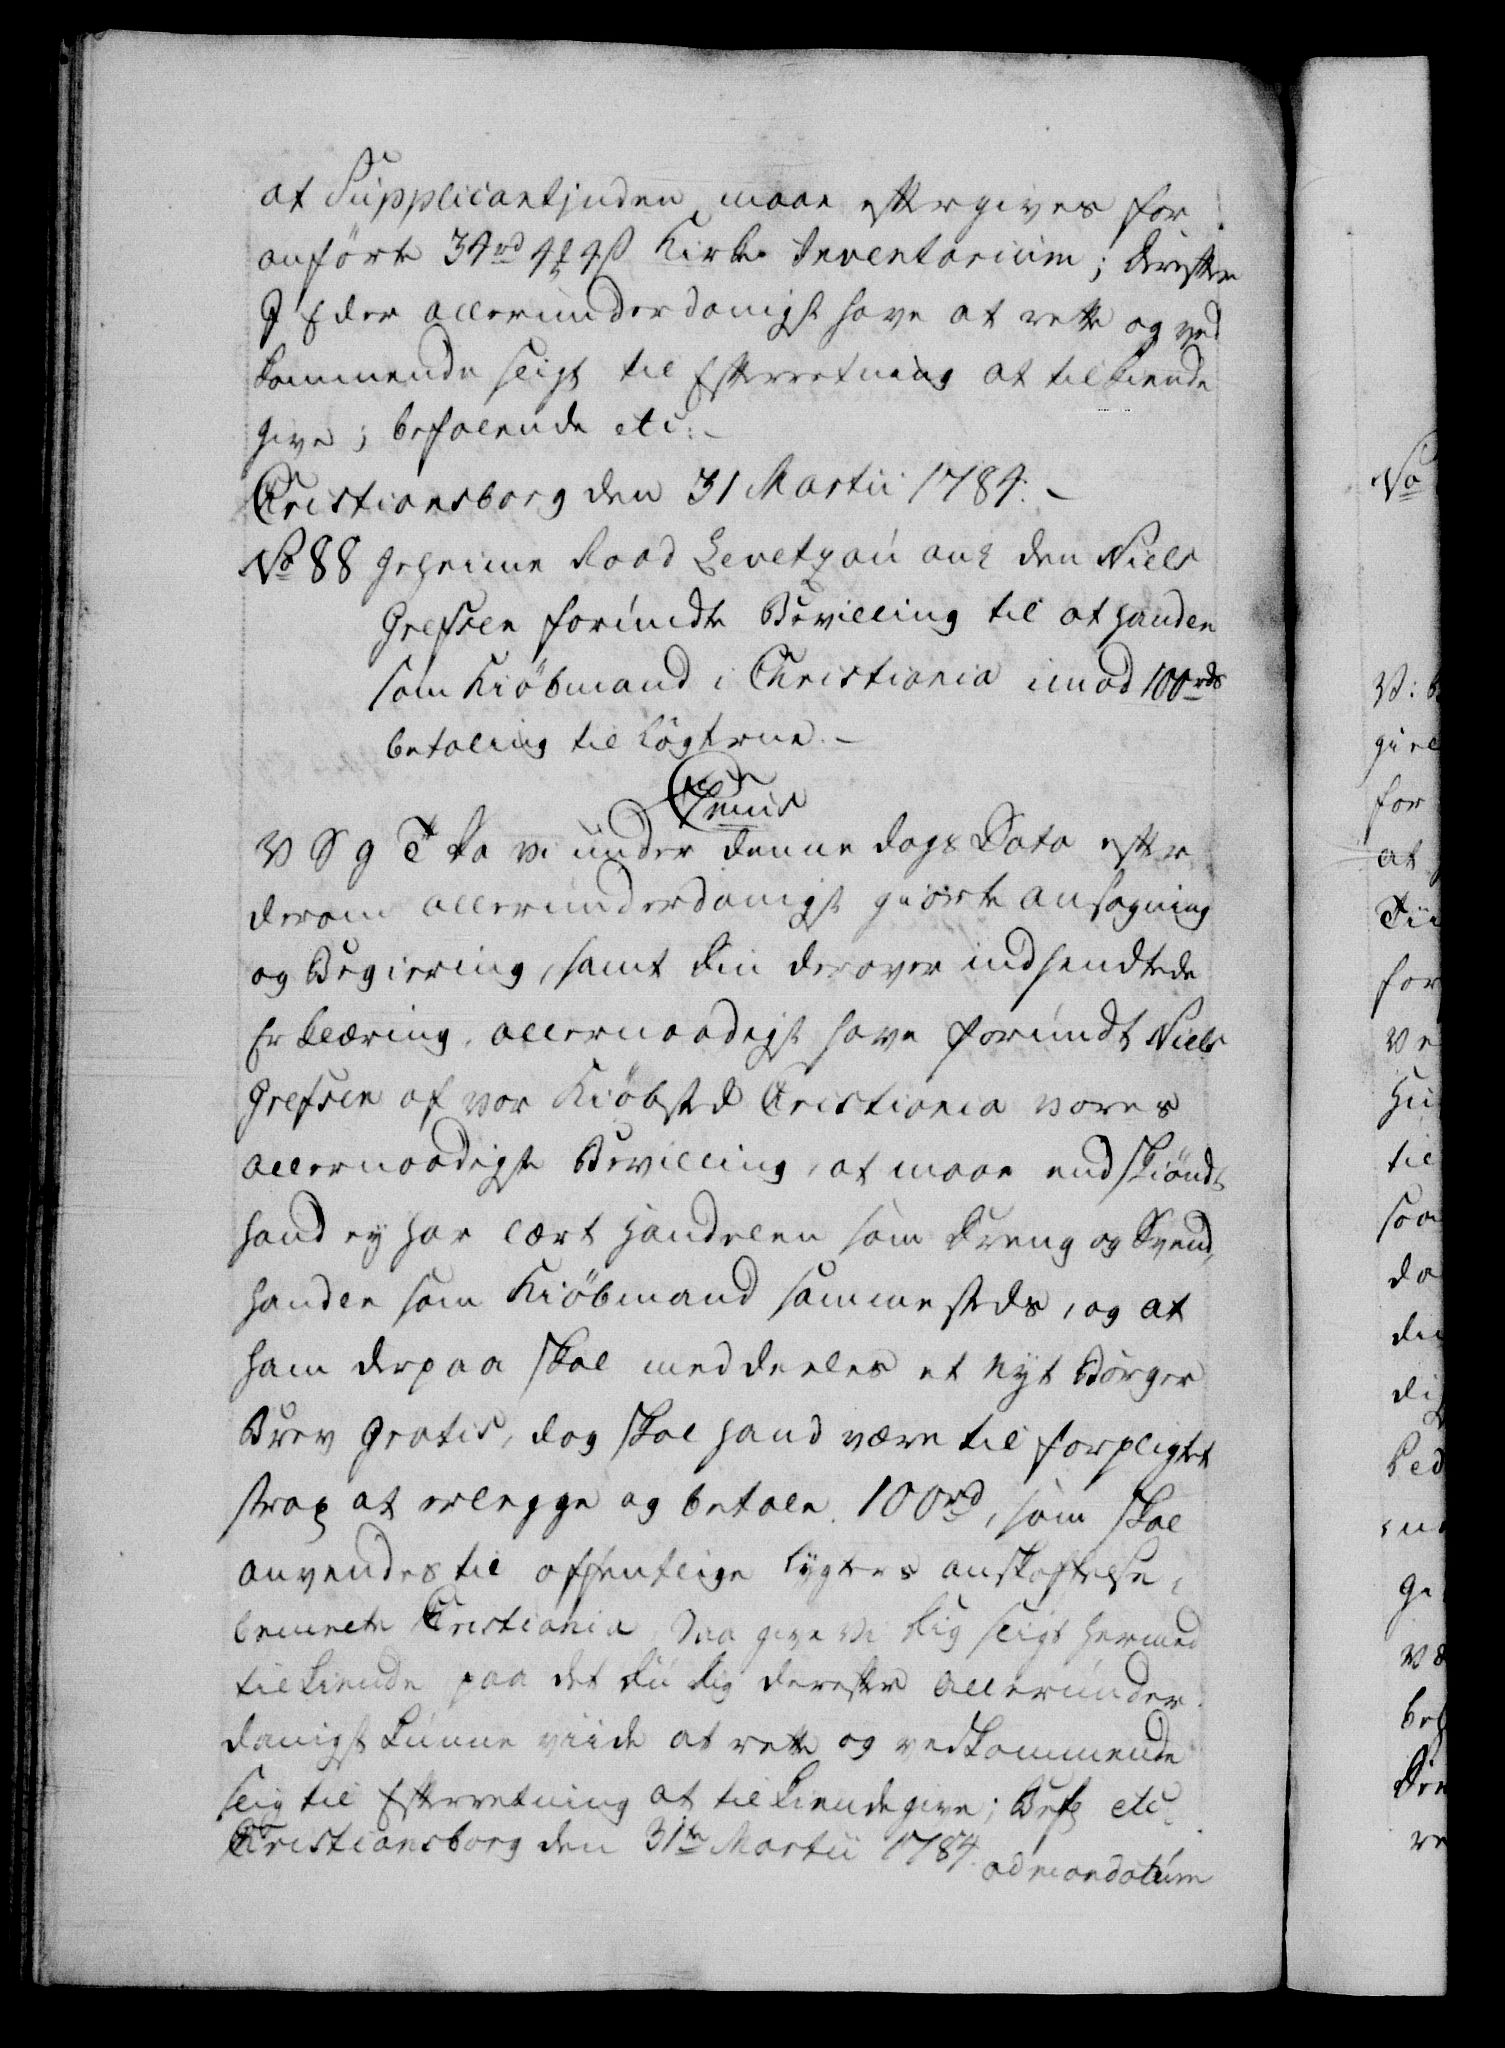 at Supplicantinden maae eftergives for
anförte 34rd 4 ß Kirke Inventarium; derefter
I Eder allerunderdanigst have at rette og ved
kommende sligt til Efterretning at tilkiende
give; befalende etc:
Cristiansborg den 31 Martii 1784.
No 88 Geheime Raad Levetzau ang den Niels
Grefsen forundte Bevilling til at handle
som Kiöbmand i Christiania imod 100rds
betaling til Lögterne.
V S g T Da vi under denne dags Dato efter
derom allerunderdanigst giorte ansögning
og Begiering, samt din derover indsendtede
Erklæring, allernaadigst have forundt Niels
Grefsen af vor Kiöbsted Cristiania vores
allernaadigste Bevilling, at maae endskiöndt
hand ey har lært Handelen som Dreng og Svend,
handle som Kiöbmand sammesteds, og at
ham derpaa skal meddeeles et Nyt Borger
Brev Gratis, dog skal hand være tilforpligtet
strax at erlegge og betale 100rd, som skal
anvendes til offentlige Lygters anskaffelse i
bemeldte Cristiania, Saa give Vi dig sligt hermed
tilkiende paa det du dig derefter allerunder
danigst kunne viide at rette og vedkommende
slig til Efterretning at tilkiendegive; Bef etc.
Cristiansborg den 31te Martii 1784.
ad mandatum